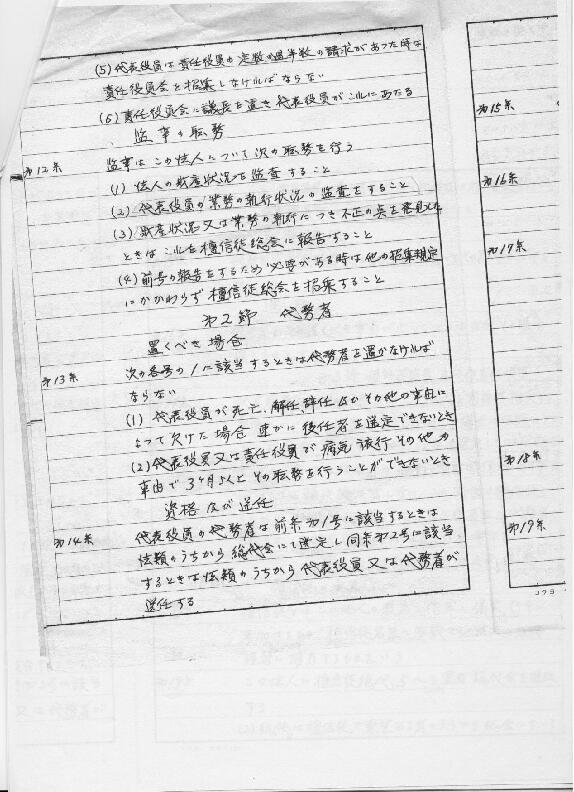 (5) 代表役員は責任役員の定数の過半数の請求があった時は
責任役員会を招集しなければならない
(6) 責任役員会に議長を置き代表役員がこれにあたる
監事の職務
第12条 監事はこの法人について次の職務を行う
(1) 法人の財産状況を監査すること
(2) 代表役員の業務の執行状況の監査をすること
(3) 財産状況又は業務の執行につき不正の点を発見した
ときはこれを檀信徒総会に報告すること
(4) 前号の報告をするため必要がある時は他の招集規定
にかかわらず檀信徒総会を招集すること
第2節 代務者
置くべき場合
第13条 次の各号の1に該当するときは代務者を置かなければ
ならない
(1) 代表役員が死亡、解任、辞任その他の事由に
よって欠けた場合 速かに後任者を選定できないとき
(2) 代表役員又は責任役員が病気 旅行その他の
事由で3ヶ月以上その職務を行うことができないとき
資格及び選任
第14条 代表役員の代務者は前条第1号に該当するときは
法類のうちから総代会にて選定し同条第2号に該当
するときは法類のうちから代表役員又は代務者が
選任する
第15条
第16条
第17条
第18条
第19条